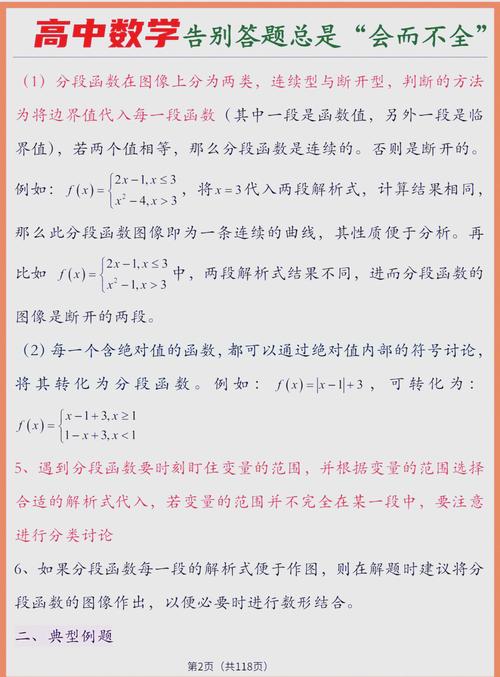 高中数学 告别答题总是“会而不全”
（1）分段函数在图像上分为两类，连续型与断开型，判断的方法
为将边界值代入每一段函数（其中一段是函数值，另外一段是临
界值），若两个值相等，那么分段函数是连续的。否则是断开的。
例如：f(x)={2x−1,x≤3 x²−4,x>3，将x=3代入两段解析式，计算结果相同，
那么此分段函数图像即为一条连续的曲线，其性质便于分析。再
比如 f(x)={2x−1,x≤3 x²−1,x>3中，两段解析式结果不同，进而分段函数的
图像是断开的两段。
（2）每一个含绝对值的函数，都可以通过绝对值内部的符号讨论，
将其转化为分段函数。例如：f(x)=|x−1|+3，可转化为：
f(x)={x−1+3,x≥1 1−x+3,x<1
5、遇到分段函数要时刻盯住变量的范围，并根据变量的范围选择
合适的解析式代入，若变量的范围并不完全在某一段中，要注意
进行分类讨论
6、如果分段函数每一段的解析式便于作图，则在解题时建议将分
段函数的图像作出，以便必要时进行数形结合。
二、典型例题
第2页（共118页）